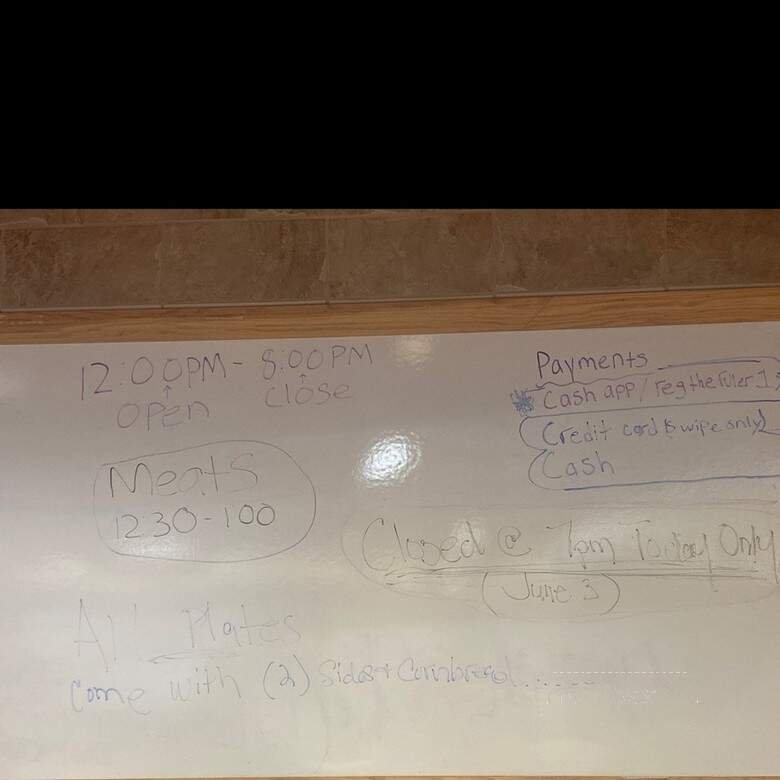 12:00PM - 8:00PM
open close
Meats
1230-100
Payments
Cash app/
Credit card swipe only)
Cash
Closed @ 7pm Today Only
(June 3)
All Plates
come with (2) Sides + Cornbread......